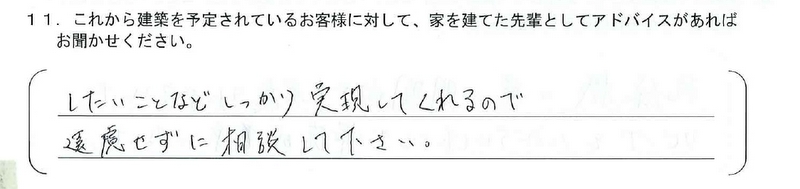 11. これから建築を予定されているお客様に対して、家を建てた先輩としてアドバイスがあれば
お聞かせください。
したいことなどしっかり実現してくれるので
遠慮せずに相談して下さい。